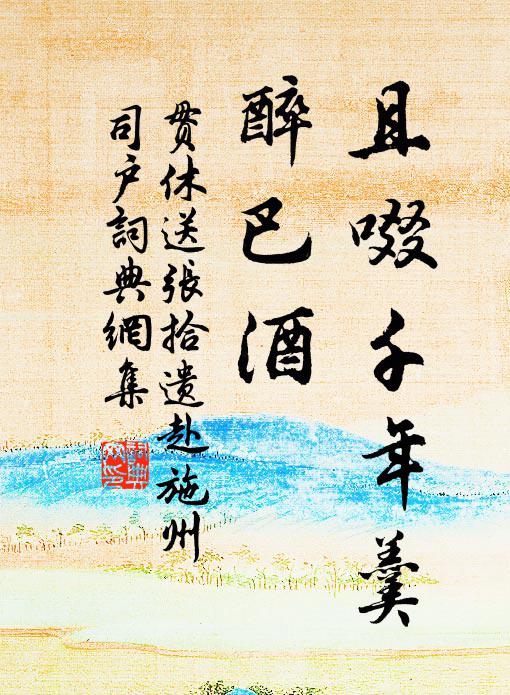 且啜千年羹
醉巴酒
贯休送張拾遺赴施州
司户詞典網集